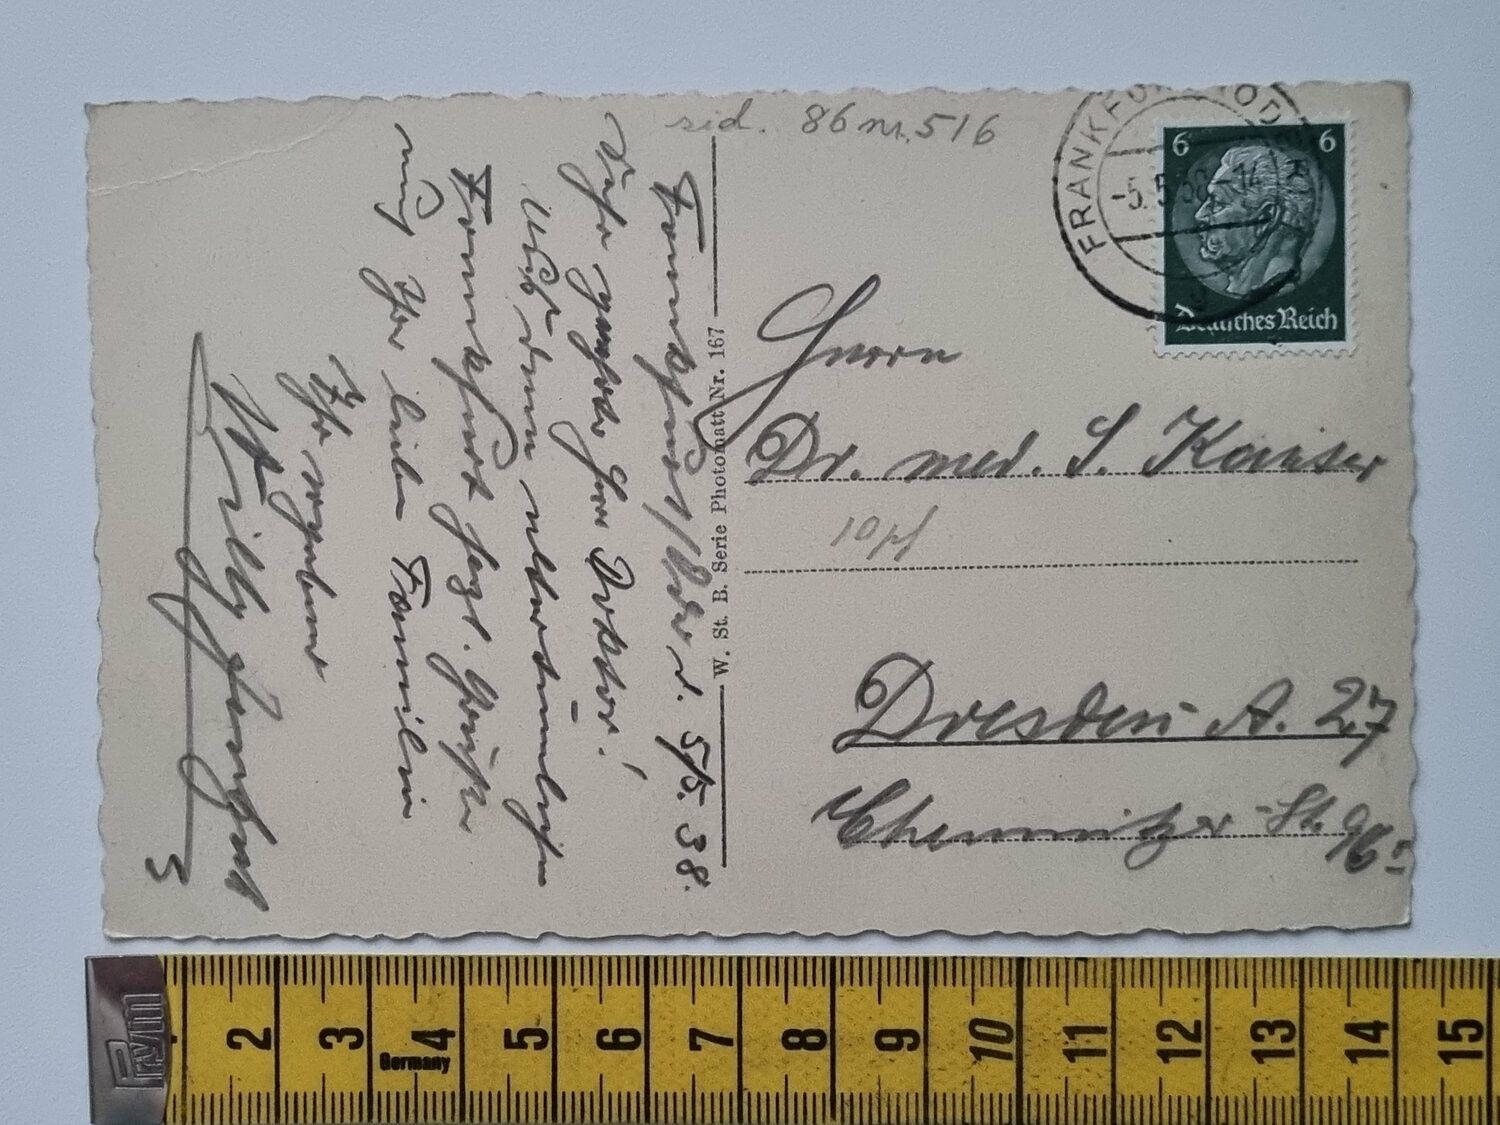 sid. 86 nr. 516
FRANKFURT (ODER)
-5.5.38-14
6 6
Deutsches Reich
Frankfurt/Oder d. 5/5. 38.
Sehr geehrter Herr Doktor!
aus dem
Frankfurt herzl. Grüße
Ihrer lieben Familie
Ihr ergebener
Willy
W. St. B. Serie Photomatt Nr. 167
Herrn
Dr. med. S. Kaiser
10 pf
Dresden A. 27
Chemnitzer-St. 96
Prym
Germany
2 3 4 5 6 7 8 9 10 11 12 13 14 15